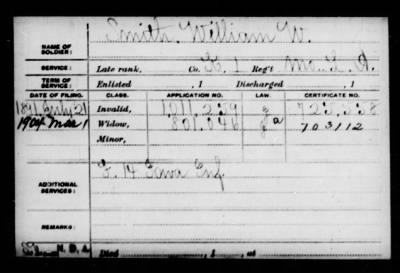 Smith, William W.
NAME OF SOLDIER:
SERVICE: Late rank, Co. 1 Reg't Mo. L. A.
TERM OF SERVICE: Enlisted , 1 Discharged , 1
DATE OF FILING. CLASS. APPLICATION NO. LAW. CERTIFICATE NO.
1891 July 21 Invalid, 1,017,239 723,338
1904 Mar 1 Widow, 801,946 703112
Minor,
ADDITIONAL SERVICES: 14 Iowa Inf
REMARKS:
Died , 1 , at